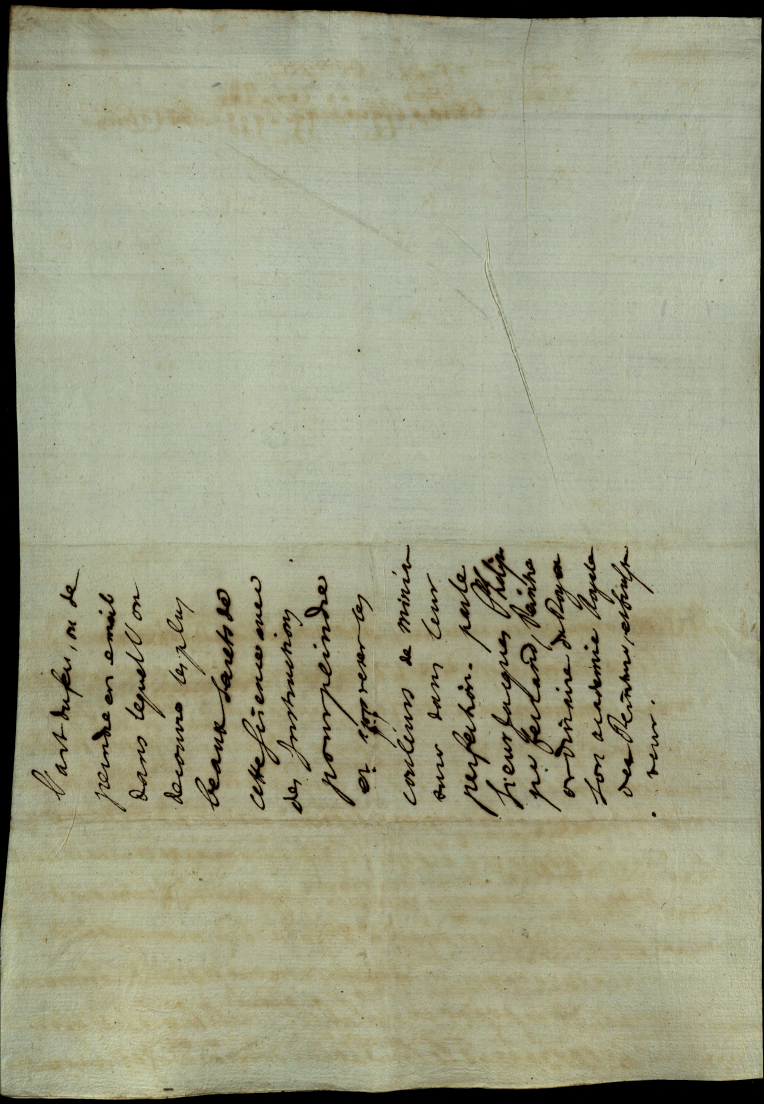 l'art du feu, ou de
peindre en email
dans lequel l'on
decouvre les plus
beaux secrets de
cette science avec
des Instructions
pour peindre
et apprester les
couleurs de minia
ture dans leur
perfection. par le
sieur Jacques Philip
pe ferland, peintre
ordinaire du Roy en
son academie Royale
des Peinture, et sculp
teur.